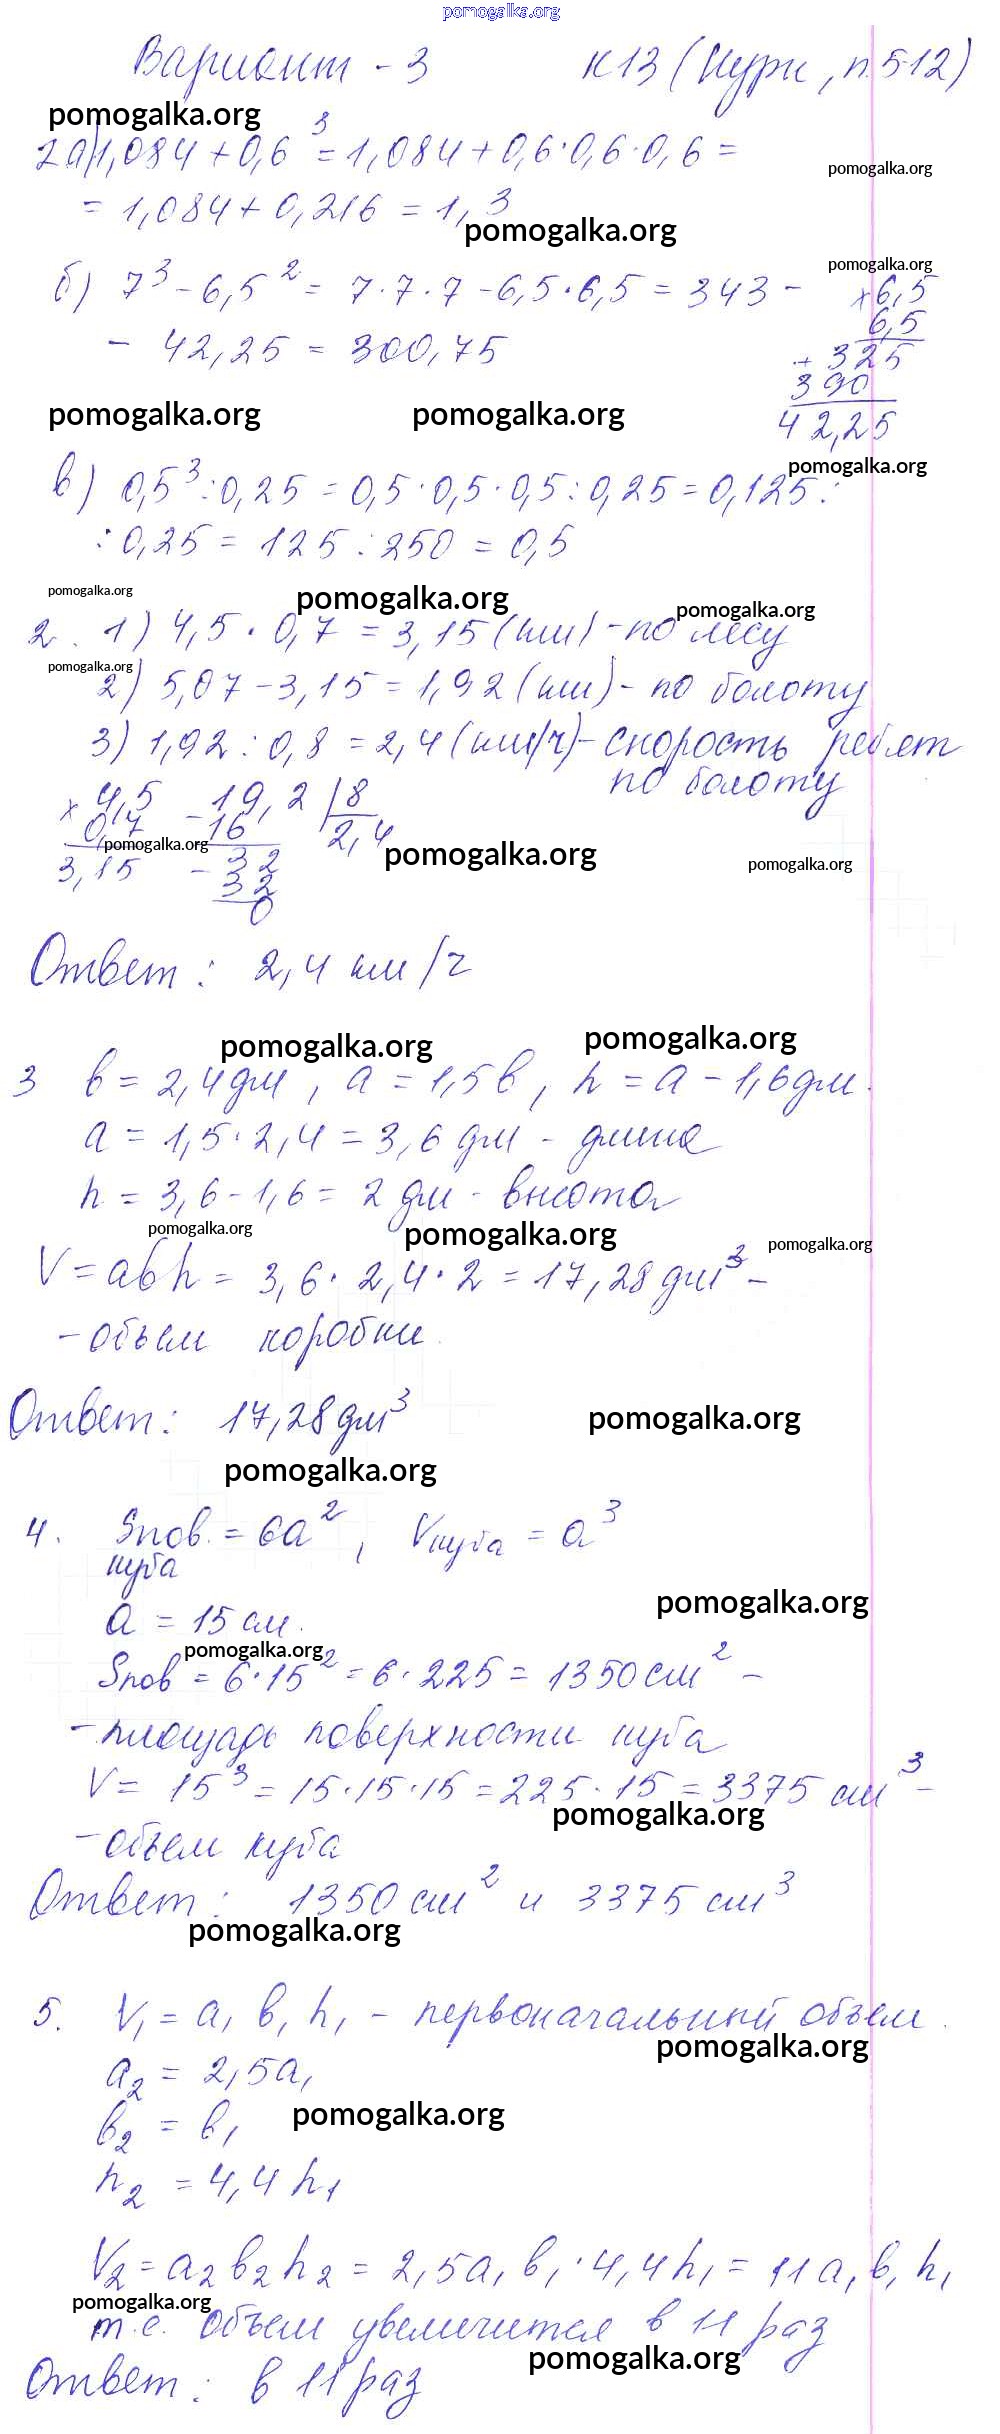 pomogalka.org
Вариант - 3 К13 (Нурк, п.5-12)
pomogalka.org
2 а) 1,084 + 0,6³ = 1,084 + 0,6 · 0,6 · 0,6 =
pomogalka.org
= 1,084 + 0,216 = 1,3
pomogalka.org
pomogalka.org
б) 7³ - 6,5² = 7 · 7 · 7 - 6,5 · 6,5 = 343 -
- 42,25 = 300,75
× 6,5
6,5
+ 325
390
42,25
pomogalka.org pomogalka.org
pomogalka.org
в) 0,5³ : 0,25 = 0,5 · 0,5 · 0,5 : 0,25 = 0,125 :
: 0,25 = 125 : 250 = 0,5
pomogalka.org pomogalka.org pomogalka.org
2. 1) 4,5 · 0,7 = 3,15 (км) - по лесу
pomogalka.org
2) 5,07 - 3,15 = 1,92 (км) - по болоту
3) 1,92 : 0,8 = 2,4 (км/ч) - скорость ребят
по болоту
× 4,5
0,7
3,15
- 19,2 | 8
16 2,4
- 32
32
0
pomogalka.org pomogalka.org pomogalka.org
Ответ: 2,4 км/ч
pomogalka.org pomogalka.org
3 в = 2,4 дм, а = 1,5в, h = а - 1,6 дм.
а = 1,5 · 2,4 = 3,6 дм - длина
h = 3,6 - 1,6 = 2 дм - высота
pomogalka.org pomogalka.org pomogalka.org
V = abh = 3,6 · 2,4 · 2 = 17,28 дм³ -
- объем коробки.
Ответ: 17,28 дм³
pomogalka.org
pomogalka.org
4. Sпов. = 6а², Vкуба = а³
куба
pomogalka.org
а = 15 см.
pomogalka.org
Sпов = 6 · 15² = 6 · 225 = 1350 см² -
- площадь поверхности куба
V = 15³ = 15 · 15 · 15 = 225 · 15 = 3375 см³ -
pomogalka.org
- объем куба
Ответ: 1350 см² и 3375 см³
pomogalka.org
5. V₁ = а₁ в₁ h₁ - первоначальный объем.
pomogalka.org
а₂ = 2,5а₁
pomogalka.org
в₂ = в₁
h₂ = 4,4 h₁
V₂ = а₂ в₂ h₂ = 2,5а₁ в₁ · 4,4h₁ = 11 а₁ в₁ h₁
pomogalka.org
т.е. объем увеличится в 11 раз
pomogalka.org
Ответ: в 11 раз